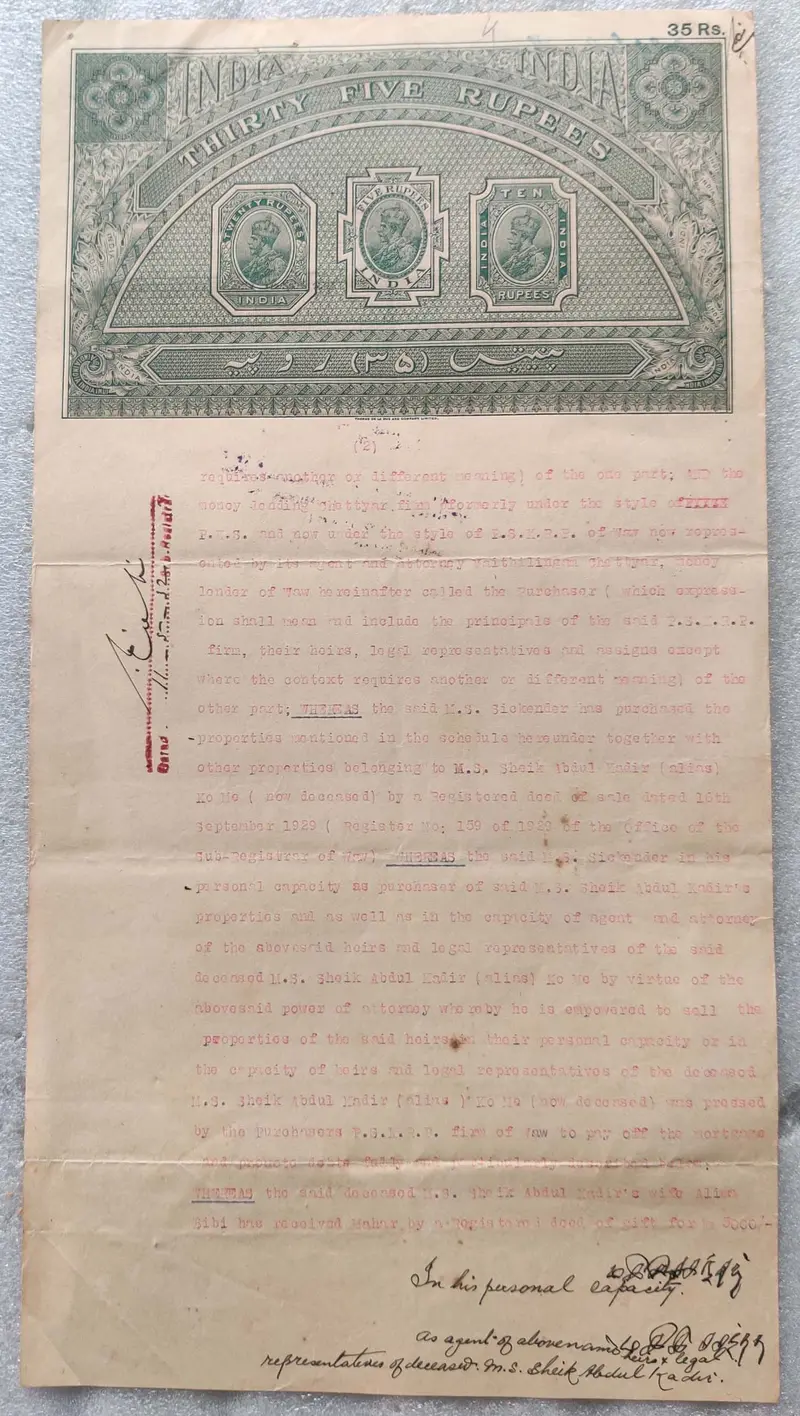 35 Rs.
INDIA INDIA
THIRTY FIVE RUPEES
TWENTY RUPEES
INDIA
FIVE RUPEES
INDIA
TEN
INDIA INDIA
RUPEES
پینتیس (۳۵) روپیہ
INDIA INDIA
(2)
requires another or different meaning) of the one part; AND the
money lending Chattyar firm formerly under the style of
and now under the style of P.S.K.R.P. of Waw now repres-
ented by its agent and attorney Vaithilingam Chattyar, money
lender of Waw hereinafter called the Purchaser ( which express-
ion shall mean and include the principals of the said P.S.K.R.P.
firm, their heirs, legal representatives and assigns except
where the context requires another or different meaning) of the
other part; WHEREAS the said M.S. Sickender has purchased the
properties mentioned in the schedule hereunder together with
other properties belonging to M.S. Sheik Abdul Kadir (alias)
Ko Me ( now deceased) by a Registered deed of sale dated 16th
September 1929 ( Register No; 159 of 1929 of the Office of the
Sub-Registrar of Waw) WHEREAS the said M.S. Sickender in his
personal capacity as purchaser of said M.S. Sheik Abdul Kadir's
properties and as well as in the capacity of agent and attorney
of the abovesaid heirs and legal representatives of the said
deceased M.S. Sheik Abdul Kadir (alias) Ko Me by virtue of the
abovesaid power of attorney whereby he is empowered to sell the
properties of the said heirs in their personal capacity or in
the capacity of heirs and legal representatives of the deceased
M.S. Sheik Abdul Kadir (alias ) Ko Me (now deceased) was pressed
by the Purchasers P.S.K.R.P. firm of Waw to pay off the mortgage
and particularly described below;
WHEREAS the said deceased M.S. Sheik Abdul Kadir's wife
Bibi has received Mahar by a Registered deed of gift for
In his personal capacity.
as agent of abovenamed heirs & legal
representatives of deceased. M.S. Sheik Abdul Kadir.
Dated